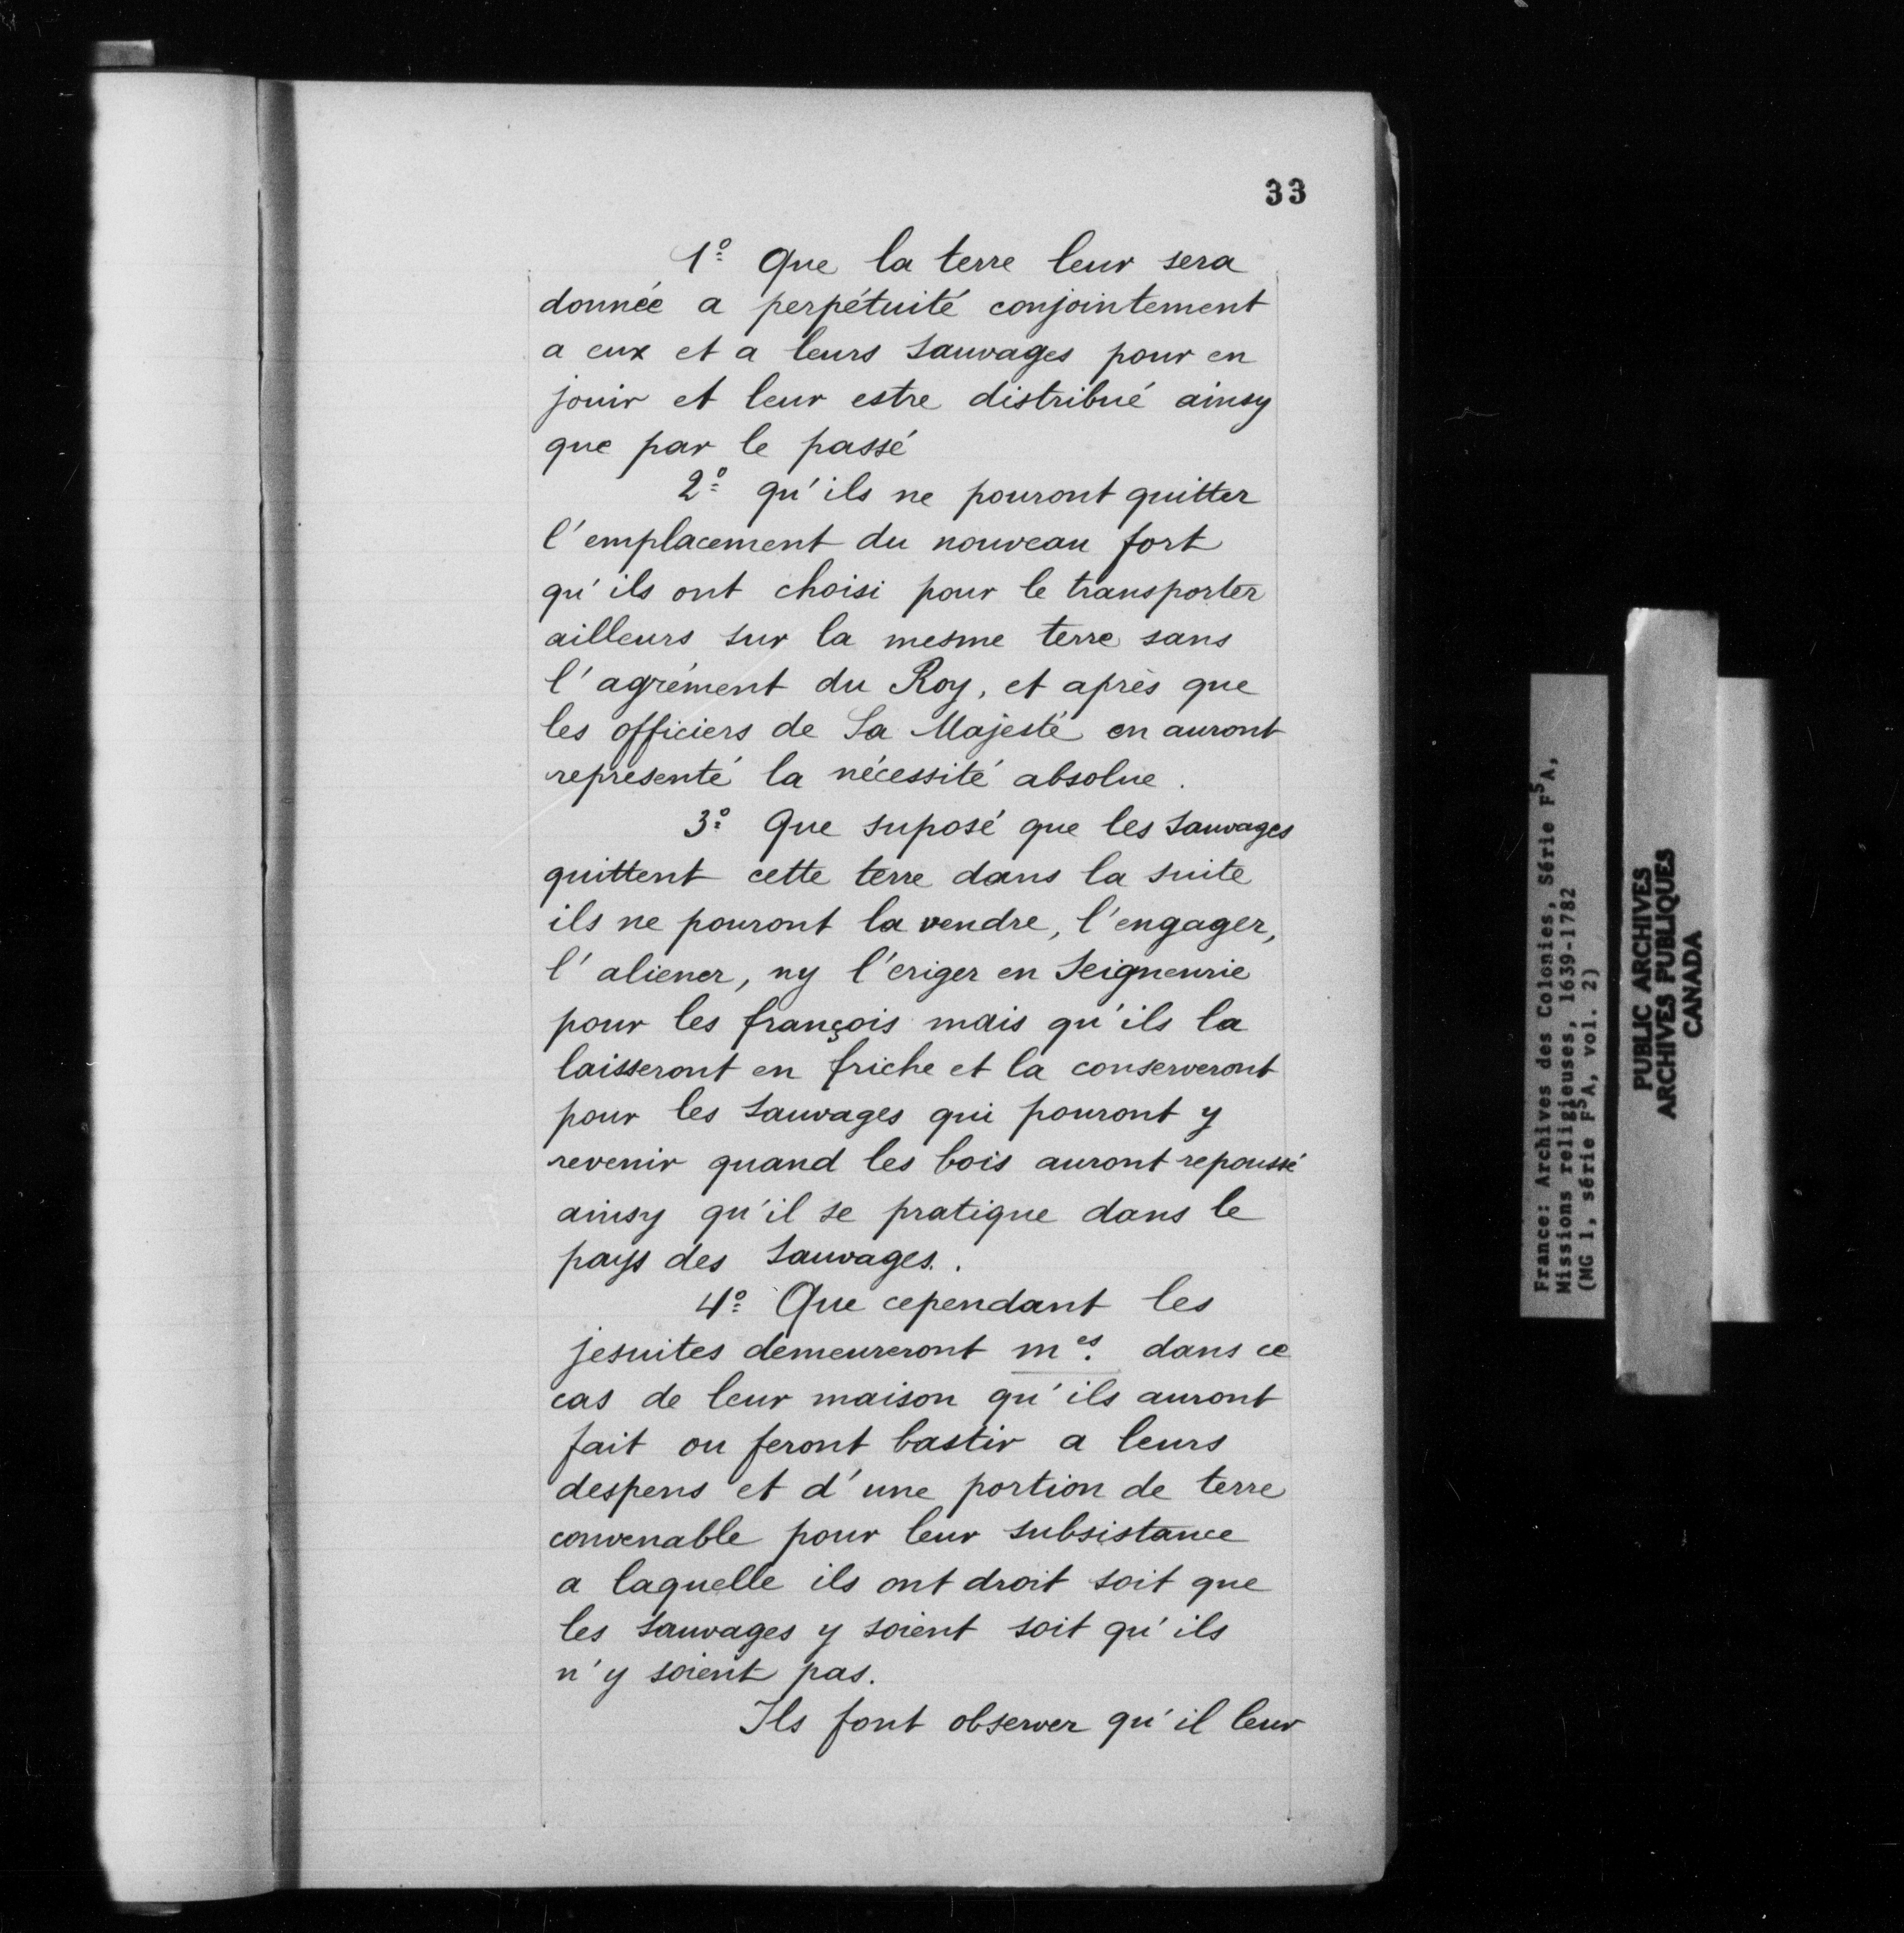 33
1º Que la terre leur sera
donnée a perpétuité conjointement
a eux et a leurs Sauvages pour en
jouir et leur estre distribué ainsy
que par le passé
2º qu'ils ne pouront quitter
l'emplacement du nouveau fort
qu'ils ont choisi pour le transporter
ailleurs sur la mesme terre sans
l'agrément du Roy, et après que
les officiers de Sa Majesté en auront
représenté la nécessité absolue.
3º Que suposé que les Sauvages
quittent cette terre dans la suite
ils ne pouront la vendre, l'engager,
l'aliener, ny l'eriger en Seigneurie
pour les françois mais qu'ils la
laisseront en friche et la conserveront
pour les Sauvages qui pouront y
revenir quand les bois auront repoussé
ainsy qu'il se pratique dans le
pays des Sauvages.
4º Que cependant les
jesuites demeureront m.es dans ce
cas de leur maison qu'ils auront
fait ou feront bastir a leurs
despens et d'une portion de terre
convenable pour leur subsistance
a laquelle ils ont droit soit que
les Sauvages y soient soit qu'ils
n'y soient pas.
Ils font observer qu'il leur
France: Archives des Colonies, Série F5A,
Missions religieuses, 1639-1782
(MG 1, série F5A, vol. 2)
PUBLIC ARCHIVES
ARCHIVES PUBLIQUES
CANADA